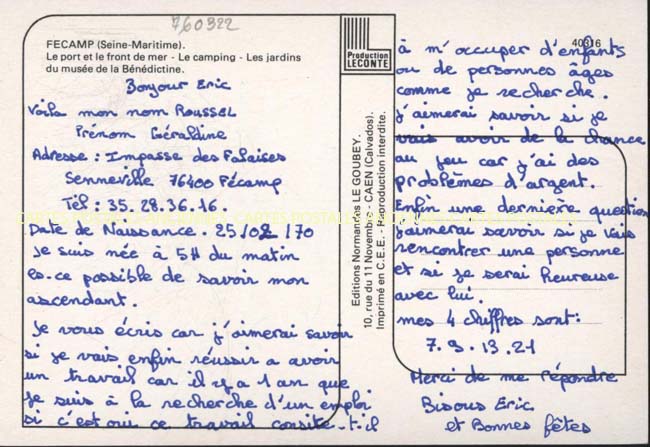 760322
FECAMP (Seine-Maritime).
Le port et le front de mer - Le camping - Les jardins
du musée de la Bénédictine.
Bonjour Eric
Voila mon nom ROUSSEL
Prénom Géraldine
Adresse : Impasse des Falaises
Senneville 76400 Fécamp
Tél : 35.28.36.16.
Date de Naissance. 25/02/70
Je suis née à 5H du matin
es-ce possible de savoir mon
ascendant.
Je vous écris car j'aimerai savoir
si je vais enfin réussir a avoir
un travail car il y a 1 an que
je suis à la recherche d'un emploi
si c'est oui ce travail consite-t-il
Production
LECONTE
Editions Normandes LE GOUBEY.
10, rue du 11 Novembre - CAEN (Calvados).
Imprimé en C.E.E. - Reproduction interdite.
40316
à m'occuper d'enfants
ou de personnes âgés
comme je recherche.
j'aimerai savoir si je
vais avoir de la chance
au jeu car j'ai des
problèmes d'argent.
Enfin une dernière question
j'aimerai savoir si je vais
rencontrer une personne
et si je serai heureuse
avec lui.
mes 4 chiffres sont:
7.9.13.21
Merci de me répondre
Bisous Eric
et Bonnes fêtes